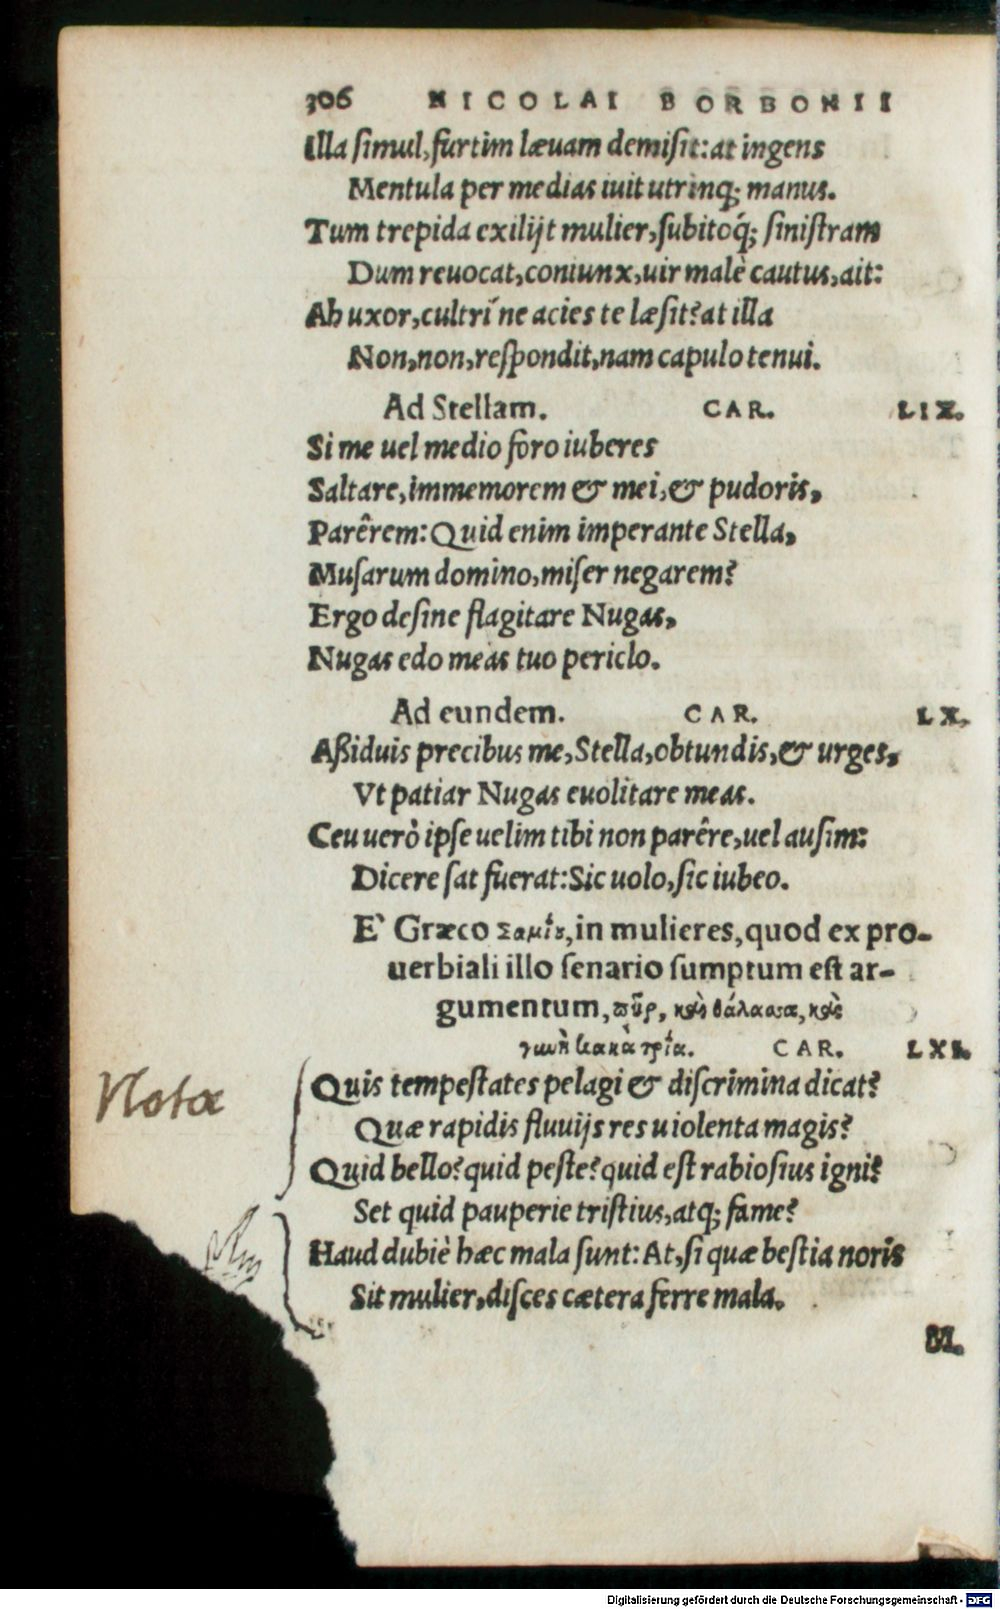 306 NICOLAI BORBONII
Illa simul, furtim lævam demisit: at ingens
Mentula per medias iuit utrinq; manus.
Tum trepida exilijt mulier, subitoq́; sinistram
Dum reuocat, coniunx, uir malè cautus, ait:
Ah uxor, cultrí ne acies te læsit? at illa
Non, non, respondit, nam capulo tenui.
Ad Stellam. CAR. LIX.
Si me uel medio foro iuberes
Saltare, immemorem & mei, & pudoris,
Parêrem: Quid enim imperante Stella,
Musarum domino, miser negarem?
Ergo desine flagitare Nugas,
Nugas edo meas tuo periclo.
Ad eundem. CAR. LX.
Aßiduis precibus me, Stella, obtundis, & urges,
Vt patiar Nugas euolitare meas.
Ceu uerò ipse uelim tibi non parêre, uel ausim:
Dicere sat fuerat: Sic uolo, sic iubeo.
E` Græco Σαμίου, in mulieres, quod ex pro-
uerbiali illo senario sumptum est ar-
gumentum, πῦρ, καὶ θάλασσα, καὶ
γυνὴ κακὰ τρία. CAR. LXI.
Nota
Quis tempestates pelagi & discrimina dicat?
Quæ rapidis fluuijs res uiolenta magis?
Quid bello? quid peste? quid est rabiosius igni?
Set quid pauperie tristius, atq; fame?
Haud dubiè hæc mala sunt: At, si quæ bestia noris
Sit mulier, disces cætera ferre mala.
M.
Digitalisierung gefördert durch die Deutsche Forschungsgemeinschaft - DFG